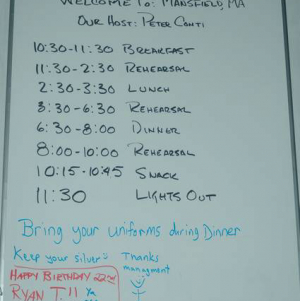 WELCOME TO: MANSFIELD, MA
OUR HOST: PETER CONTI
10:30-11:30 BREAKFAST
11:30-2:30 REHEARSAL
2:30-3:30 LUNCH
3:30-6:30 REHEARSAL
6:30-8:00 DINNER
8:00-10:00 REHEARSAL
10:15-10:45 SNACK
11:30 LIGHTS OUT
Bring your uniforms during Dinner
Keep your silvers Thanks
managment
HAPPY BIRTHDAY 22nd
RYAN T.!! Ya